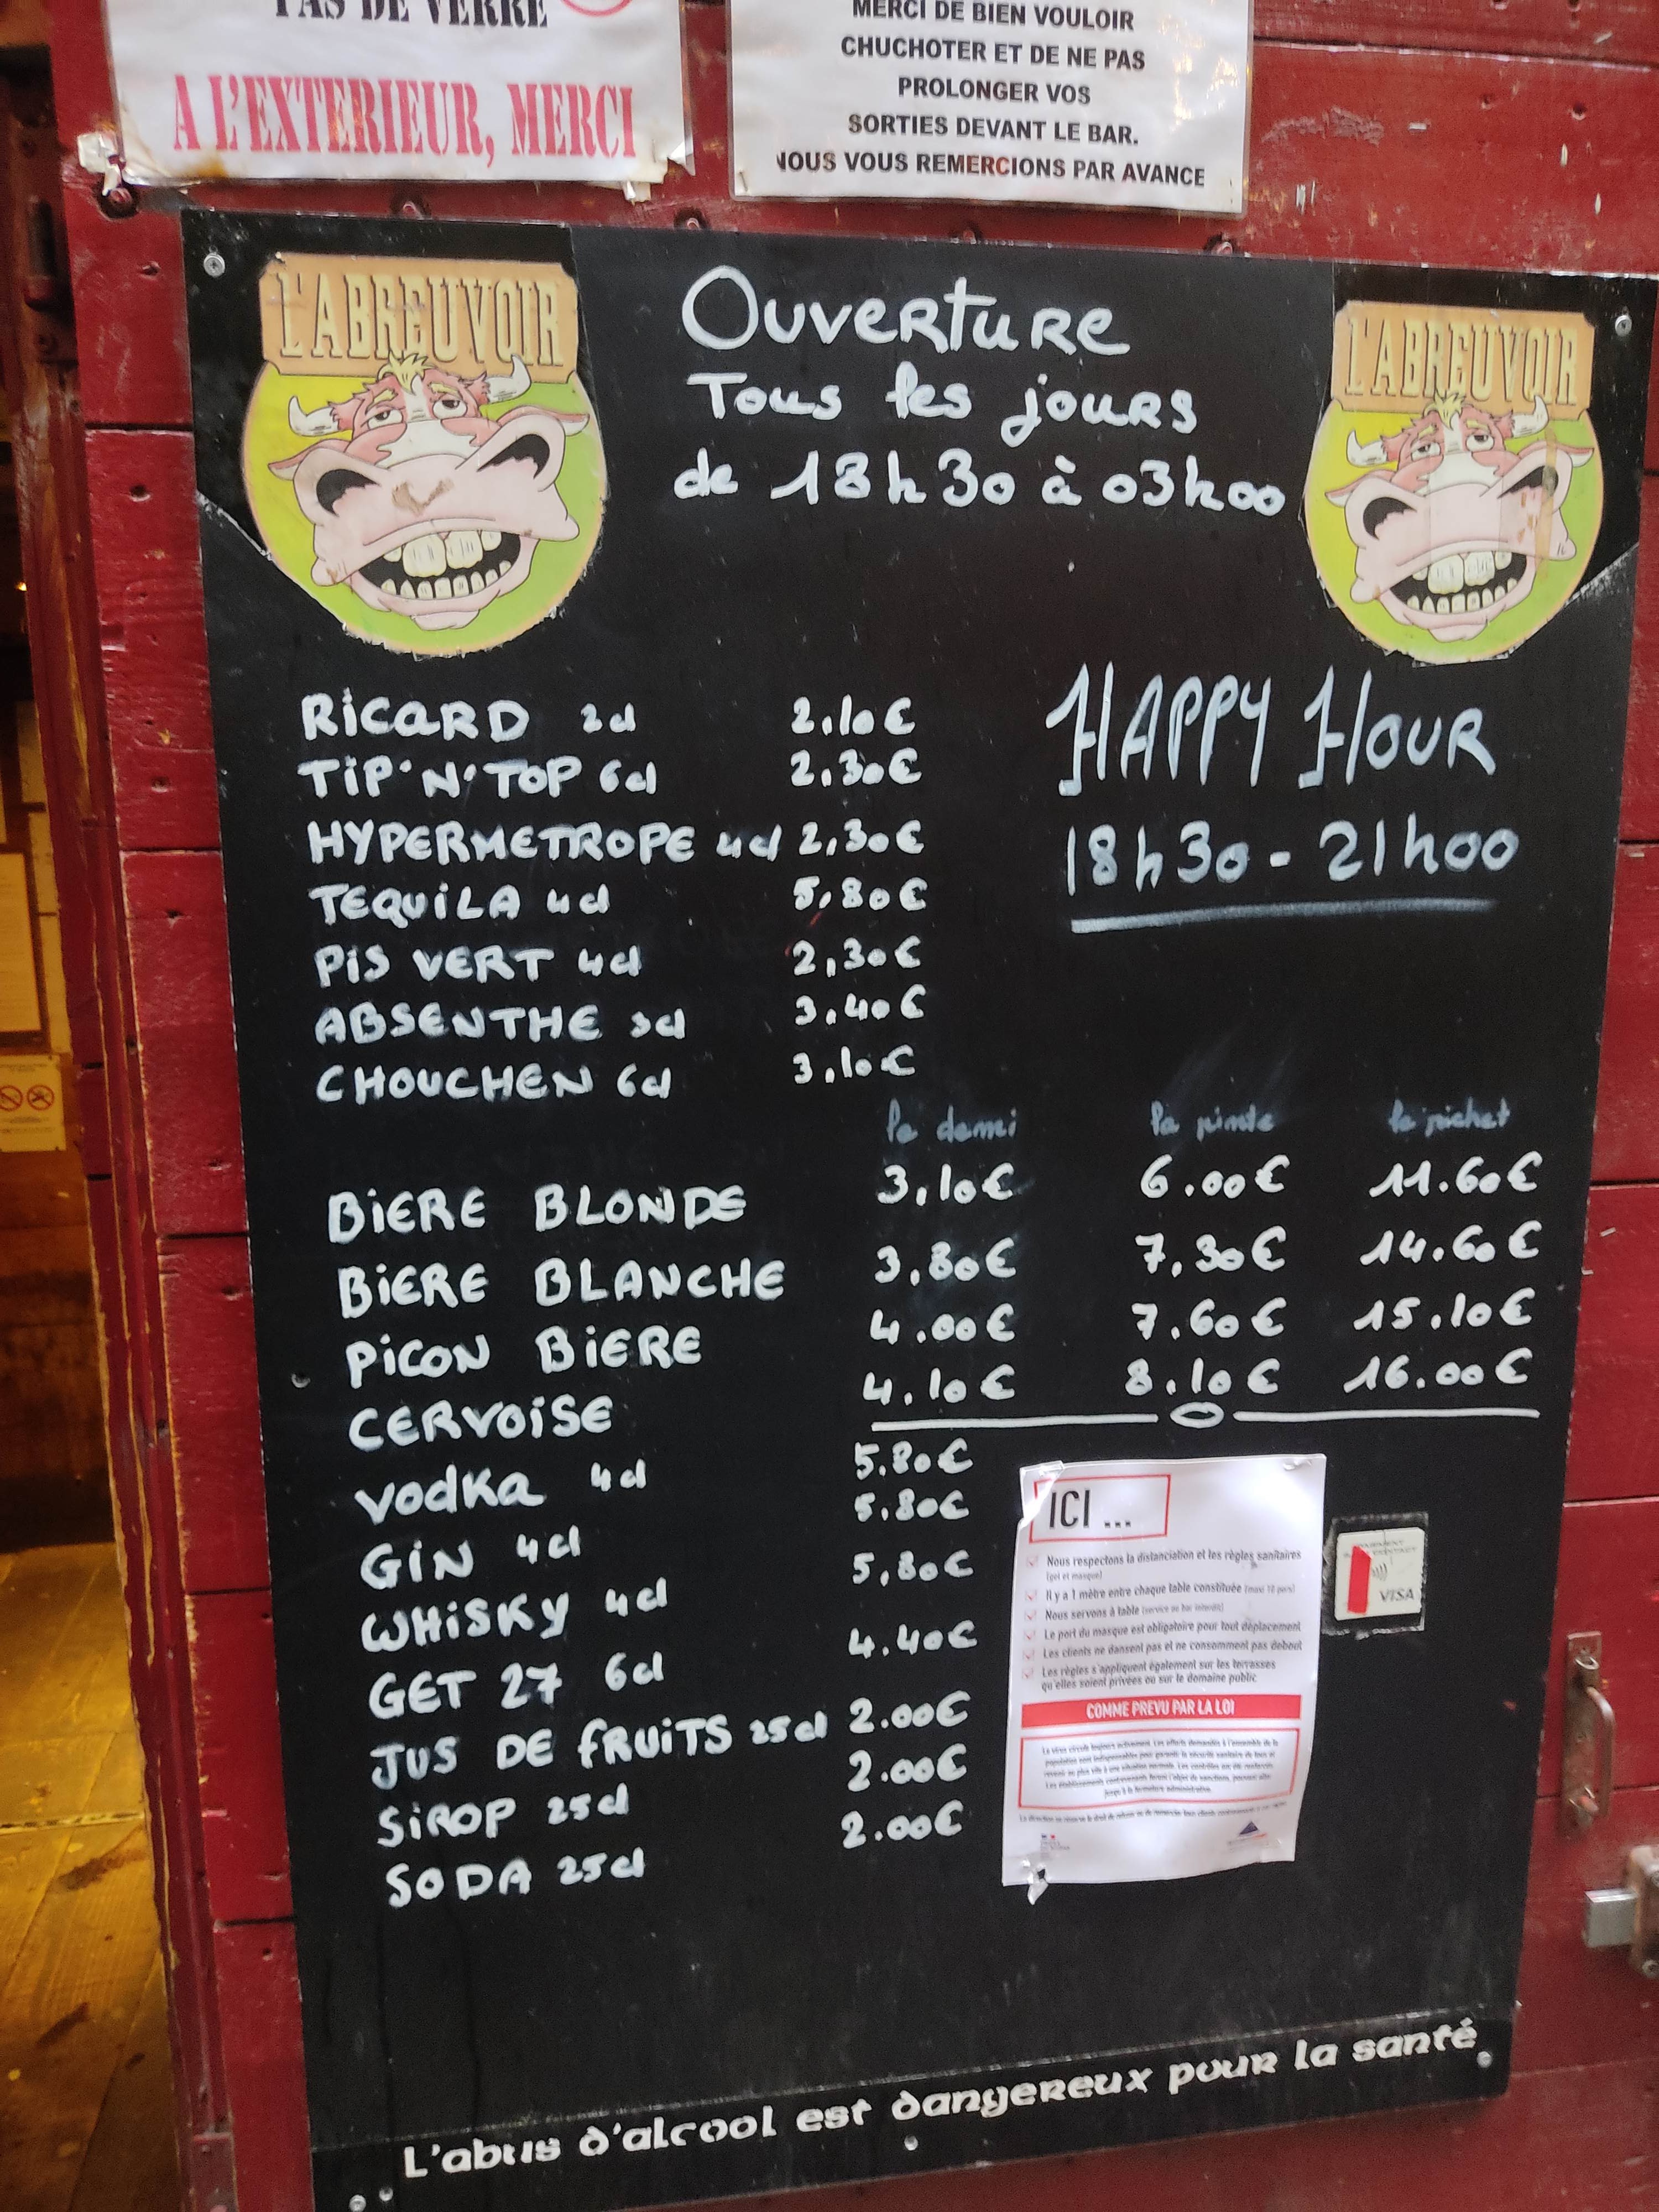 PAS DE VERRE
A L'EXTERIEUR, MERCI
MERCI DE BIEN VOULOIR
CHUCHOTER ET DE NE PAS
PROLONGER VOS
SORTIES DEVANT LE BAR.
NOUS VOUS REMERCIONS PAR AVANCE
L'ABREUVOIR
L'ABREUVOIR
Ouverture
Tous les jours
de 18h30 à 03h00
HAPPY HOUR
18h30 - 21h00
RICARD 2cl 2.10€
TIP'N'TOP 6cl 2.30€
HYPERMETROPE 4cl 2,30€
TEQUILA 4cl 5,80€
PIS VERT 4cl 2,30€
ABSENTHE 3cl 3.40€
CHOUCHEN 6cl 3.10€
le demi la pinte le pichet
BIERE BLONDE 3,10€ 6.00€ 11.60€
BIERE BLANCHE 3,80€ 7,30€ 14.60€
PICON BIERE 4.00€ 7.60€ 15.10€
CERVOISE 4.10€ 8.10€ 16.00€
VODKA 4cl 5.80€
GIN 4cl 5.80€
WHISKY 4cl 5,80€
GET 27 6cl 4.40€
JUS DE FRUITS 25cl 2.00€
SIROP 25cl 2.00€
SODA 25cl 2.00€
ICI ...
Nous respectons la distanciation et les règles sanitaires
(gel et masque)
Il y a 1 mètre entre chaque table constituée (maxi 10 pers)
Nous servons à table (service au bar interdit)
Le port du masque est obligatoire pour tout déplacement
Les clients ne dansent pas et ne consomment pas debout
Les règles s'appliquent également sur les terrasses
qu'elles soient privées ou sur le domaine public
COMME PREVU PAR LA LOI
VISA
L'abus d'alcool est dangereux pour la santé